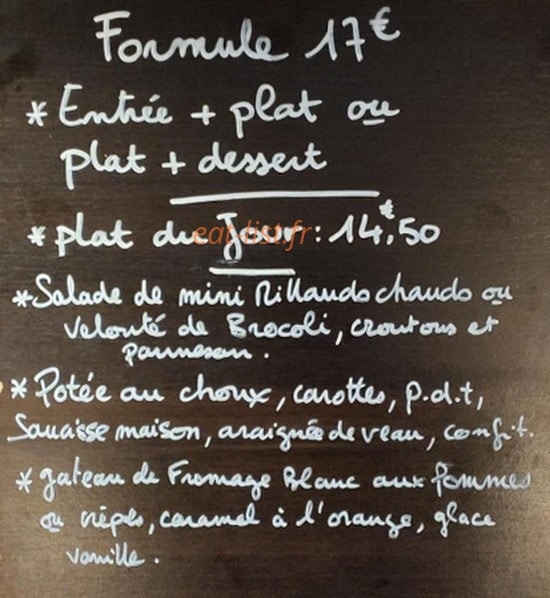 Formule 17€
* Entrée + plat ou
plat + dessert
* plat du Jour : 14€.50
eat-list.fr
* Salade de mini Rillauds chauds ou
Velouté de Brocoli, croutons et
parmesan.
* Potée au choux, carottes, p.d.t,
Sauaisse maison, araignée de veau, confit.
* gateau de Fromage Blanc aux pommes
ou crêpes, caramel à l'orange, glace
vanille.